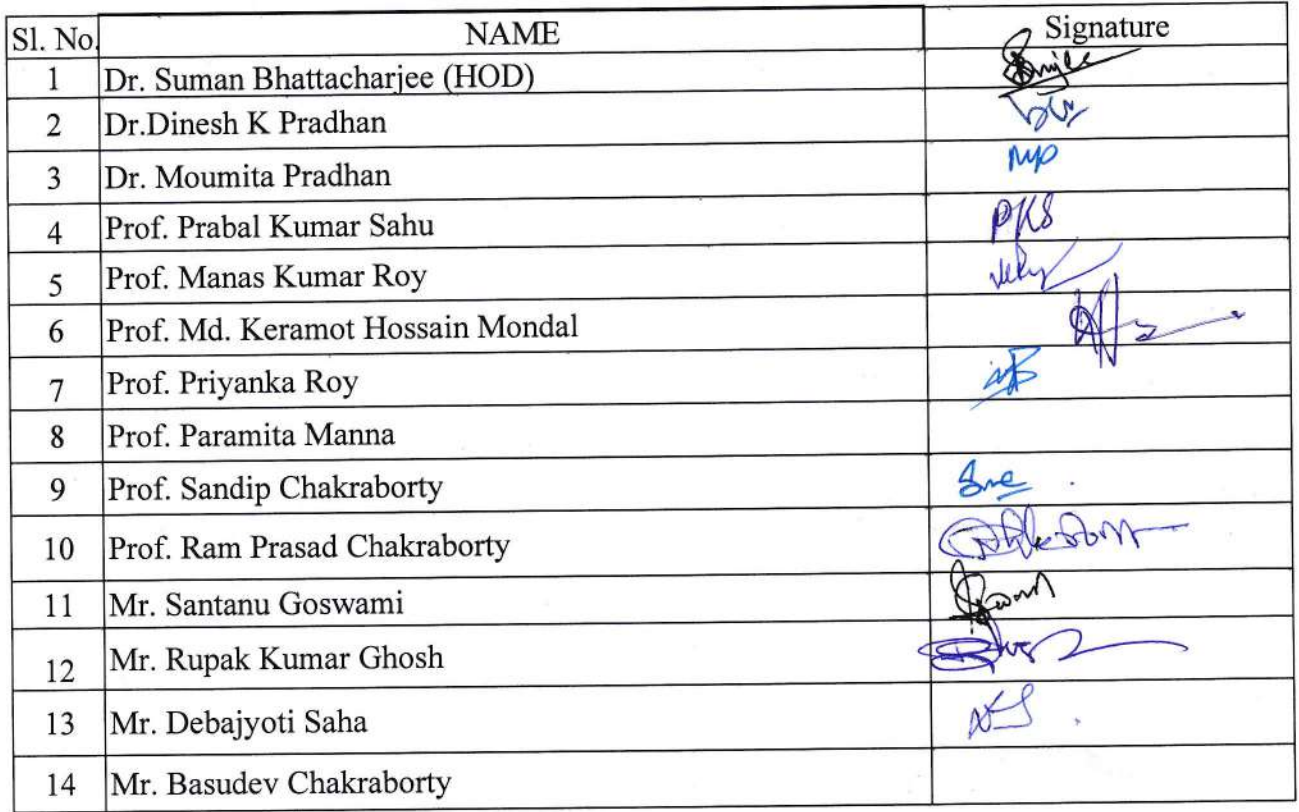 Sl. No. NAME Signature
1 Dr. Suman Bhattacharjee (HOD)
2 Dr.Dinesh K Pradhan
3 Dr. Moumita Pradhan MP
4 Prof. Prabal Kumar Sahu PKS
5 Prof. Manas Kumar Roy
6 Prof. Md. Keramot Hossain Mondal
7 Prof. Priyanka Roy
8 Prof. Paramita Manna
9 Prof. Sandip Chakraborty
10 Prof. Ram Prasad Chakraborty
11 Mr. Santanu Goswami
12 Mr. Rupak Kumar Ghosh
13 Mr. Debajyoti Saha
14 Mr. Basudev Chakraborty